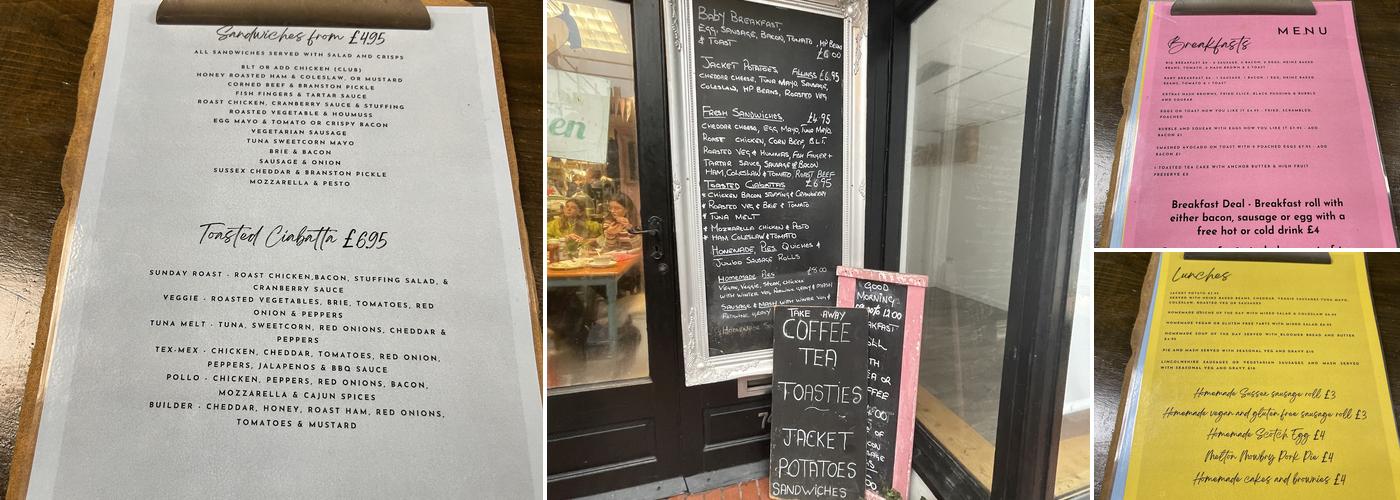 Sandwiches from £495
ALL SANDWICHES SERVED WITH SALAD AND CRISPS
BLT OR ADD CHICKEN (CLUB)
HONEY ROASTED HAM & COLESLAW, OR MUSTARD
CORNED BEEF & BRANSTON PICKLE
FISH FINGERS & TARTAR SAUCE
ROAST CHICKEN, CRANBERRY SAUCE & STUFFING
ROASTED VEGETABLE & HOUMUSS
EGG MAYO & TOMATO OR CRISPY BACON
VEGETARIAN SAUSAGE
TUNA SWEETCORN MAYO
BRIE & BACON
SAUSAGE & ONION
SUSSEX CHEDDAR & BRANSTON PICKLE
MOZZARELLA & PESTO
Toasted Ciabatta £695
SUNDAY ROAST - ROAST CHICKEN,BACON, STUFFING SALAD, &
CRANBERRY SAUCE
VEGGIE - ROASTED VEGETABLES, BRIE, TOMATOES, RED
ONION & PEPPERS
TUNA MELT - TUNA, SWEETCORN, RED ONIONS, CHEDDAR &
PEPPERS
TEX-MEX - CHICKEN, CHEDDAR, TOMATOES, RED ONION,
PEPPERS, JALAPENOS & BBQ SAUCE
POLLO - CHICKEN, PEPPERS, RED ONIONS, BACON,
MOZZARELLA & CAJUN SPICES
BUILDER - CHEDDAR, HONEY, ROAST HAM, RED ONIONS,
TOMATOES & MUSTARD
BABY BREAKFAST
EGG, SAUSAGE, BACON, TOMATO, HP BEANS
& TOAST £6.00
JACKET POTATOES, FILLINGS £6.95
CHEDDAR CHEESE, TUNA MAYO, SAUSAGE,
COLESLAW, HP BEANS, ROASTED VEG
FRESH SANDWICHES £4.95
CHEDDAR CHEESE, EGG MAYO, TUNA MAYO
ROAST CHICKEN, CORN BEEF, B.L.T.
ROASTED VEG & HUMMAS, FISH FINGER +
TARTAR SAUCE, SAUSAGE & BACON
HAM, COLESLAW & TOMATO, ROAST BEEF
TOASTED CIABATTAS £6.95
CHICKEN BACON STUFFING & CRANBERRY
ROASTED VEG & BRIE & TOMATO
TUNA MELT
MOZZARELLA CHICKEN & PESTO
HAM COLESLAW & TOMATO
HOMEMADE PIES QUICHES &
JUMBO SAUSAGE ROLLS
HOMEMADE PIES £8.00
VEGAN, VEGGIE, STEAK, CHICKEN
WITH WINTER VEG & MASH
SAUSAGE & MASH WITH WINTER VEG &
en
TAKE AWAY
COFFEE
TEA
TOASTIES
JACKET
POTATOES
SANDWICHES
GOOD
MORNING
12:00
MENU
Breakfasts
BIG BREAKFAST £8 - 2 SAUSAGE, 2 BACON, 2 EGGS, HEINZ BAKED
BEANS, TOMATO, 2 HASH BROWN & 2 TOAST
BABY BREAKFAST £6 - 1 SAUSAGE, 1 BACON, 1 EGG, HEINZ BAKED
BEANS, TOMATO & TOAST
EXTRAS HASH BROWNS, FRIED SLICE, BLACK PUDDING & BUBBLE
AND SQUEAK
EGGS ON TOAST HOW YOU LIKE IT £4.95 - FRIED, SCRAMBLED,
POACHED
BUBBLE AND SQUEAK WITH EGGS HOW YOU LIKE IT £7.95 - ADD
BACON £1
SMASHED AVOCADO ON TOAST WITH 2 POACHED EGGS £7.95 - ADD
BACON £1
1 TOASTED TEA CAKE WITH ANCHOR BUTTER & HIGH FRUIT
PRESERVE £3
Breakfast Deal - Breakfast roll with
either bacon, sausage or egg with a
free hot or cold drink £4
Lunches
JACKET POTATO £6.95
SERVED WITH HEINZ BAKED BEANS, CHEDDAR, VEGGIE SAUSAGES TUNA MAYO,
COLESLAW, ROASTED VEG OR SAUSAGES
HOMEMADE QUICHE OF THE DAY WITH MIXED SALAD & COLESLAW £6.95
HOMEMADE VEGAN OR GLUTEN FREE TARTS WITH MIXED SALAD £6.95
HOMEMADE SOUP OF THE DAY SERVED WITH BLOOMER BREAD AND BUTTER
£4.95
PIE AND MASH SERVED WITH SEASONAL VEG AND GRAVY £10
LINCOLNSHIRE SAUSAGES OR VEGETARIAN SAUSAGES AND MASH SERVED
WITH SEASONAL VEG AND GRAVY £10
Homemade Sussex sausage roll £3
Homemade vegan and gluten free sausage roll £3
Homemade Scotch Egg £4
Melton Mowbry Pork Pie £4
Homemade cakes and brownies £4